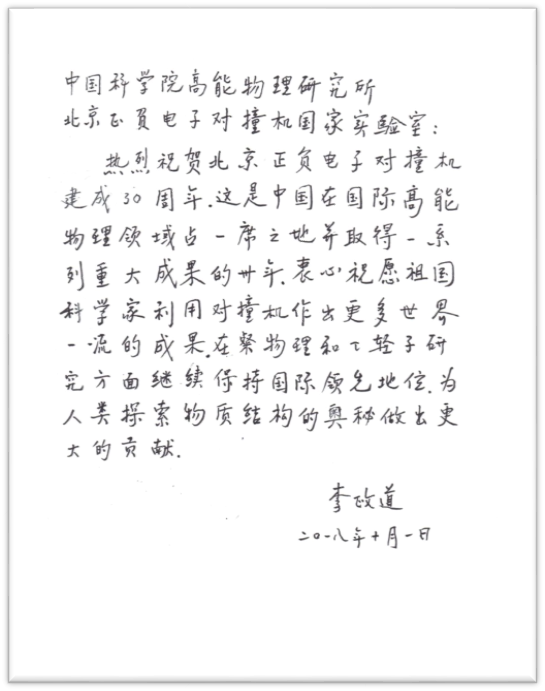 中国科学院高能物理研究所
北京正負电子对撞机国家实验室：
热烈祝贺北京正负电子对撞机
建成30周年.这是中国在国际高能
物理领域占一席之地并取得一系
列重大成果的卅年.衷心祝愿祖国
科学家利用对撞机作出更多世界
一流的成果.在粲物理和τ轻子研
究方面继续保持国际领先地位.为
人类探索物质结构的奥秘做出更
大的贡献.
李政道
二〇一八年十月一日